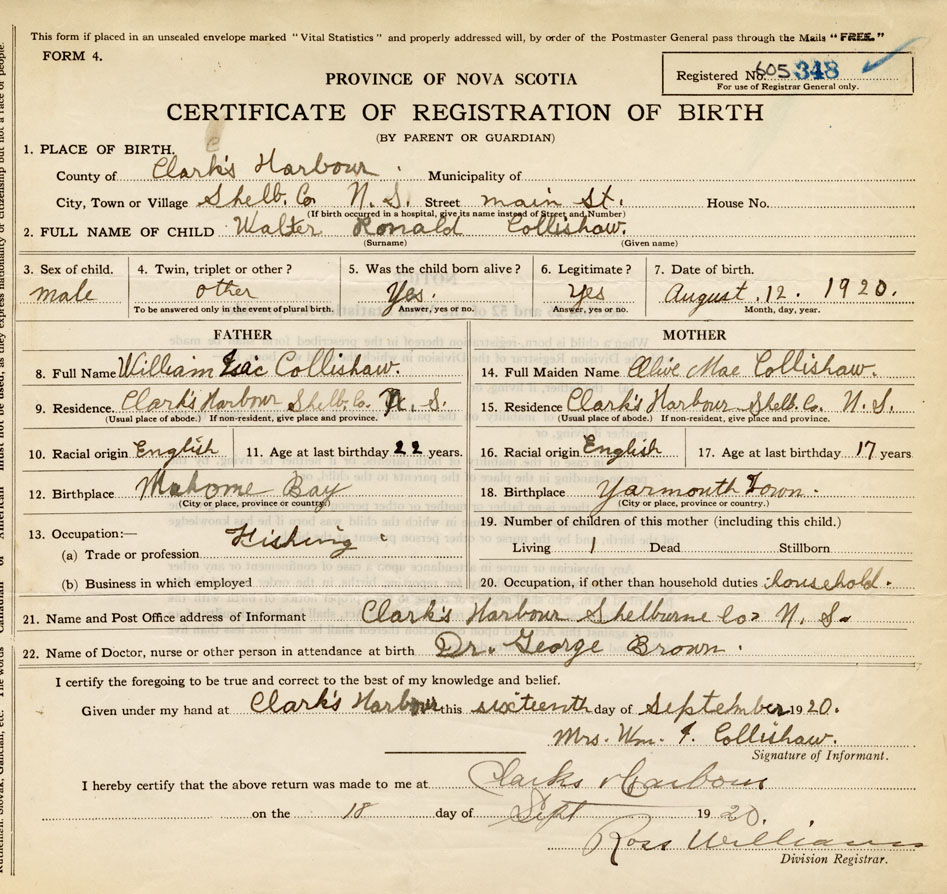 This form if placed in an unsealed envelope marked "Vital Statistics" and properly addressed will, by order of the Postmaster General pass through the Mails "FREE."
FORM 4.
Registered No. 605348
For use of Registrar General only.
PROVINCE OF NOVA SCOTIA
CERTIFICATE OF REGISTRATION OF BIRTH
(BY PARENT OR GUARDIAN)
1. PLACE OF BIRTH.
County of Clark's Harbour. Municipality of
City, Town or Village Shelb. Co. N. S. Street main St. House No.
(If birth occurred in a hospital, give its name instead of Street and Number)
2. FULL NAME OF CHILD Walter Ronald Collishaw.
(Surname) (Given name)
3. Sex of child. 4. Twin, triplet or other? 5. Was the child born alive? 6. Legitimate? 7. Date of birth.
male other Yes. Yes August. 12. 1920.
To be answered only in the event of plural birth. Answer, yes or no. Answer, yes or no. Month, day, year.
FATHER MOTHER
8. Full Name William Isic Collishaw. 14. Full Maiden Name Alive Mae Collishaw.
9. Residence. Clark's Harbour Shelb. Co. N. S. 15. Residence Clark's Harbour Shelb. Co. N. S.
(Usual place of abode.) If non-resident, give place and province. (Usual place of abode.) If non-resident, give place and province.
10. Racial origin English 11. Age at last birthday 22 years. 16. Racial origin English 17. Age at last birthday 17 years
12. Birthplace Mahome Bay 18. Birthplace Yarmouth Town.
(City or place, province or country.) (City or place, province or country.)
13. Occupation:— 19. Number of children of this mother (including this child.)
(a) Trade or profession Fishing. Living 1 Dead Stillborn
(b) Business in which employed 20. Occupation, if other than household duties household.
21. Name and Post Office address of Informant Clark's Harbour Shelburne Co. N. S.
22. Name of Doctor, nurse or other person in attendance at birth Dr. George Brown.
I certify the foregoing to be true and correct to the best of my knowledge and belief.
Given under my hand at Clark's Harbour this sixteenth day of September 1920.
Mrs. Wm. I. Collishaw.
Signature of Informant.
I hereby certify that the above return was made to me at Clarks Harbour
on the 18 day of Sept 1920.
Ross Williams
Division Registrar.